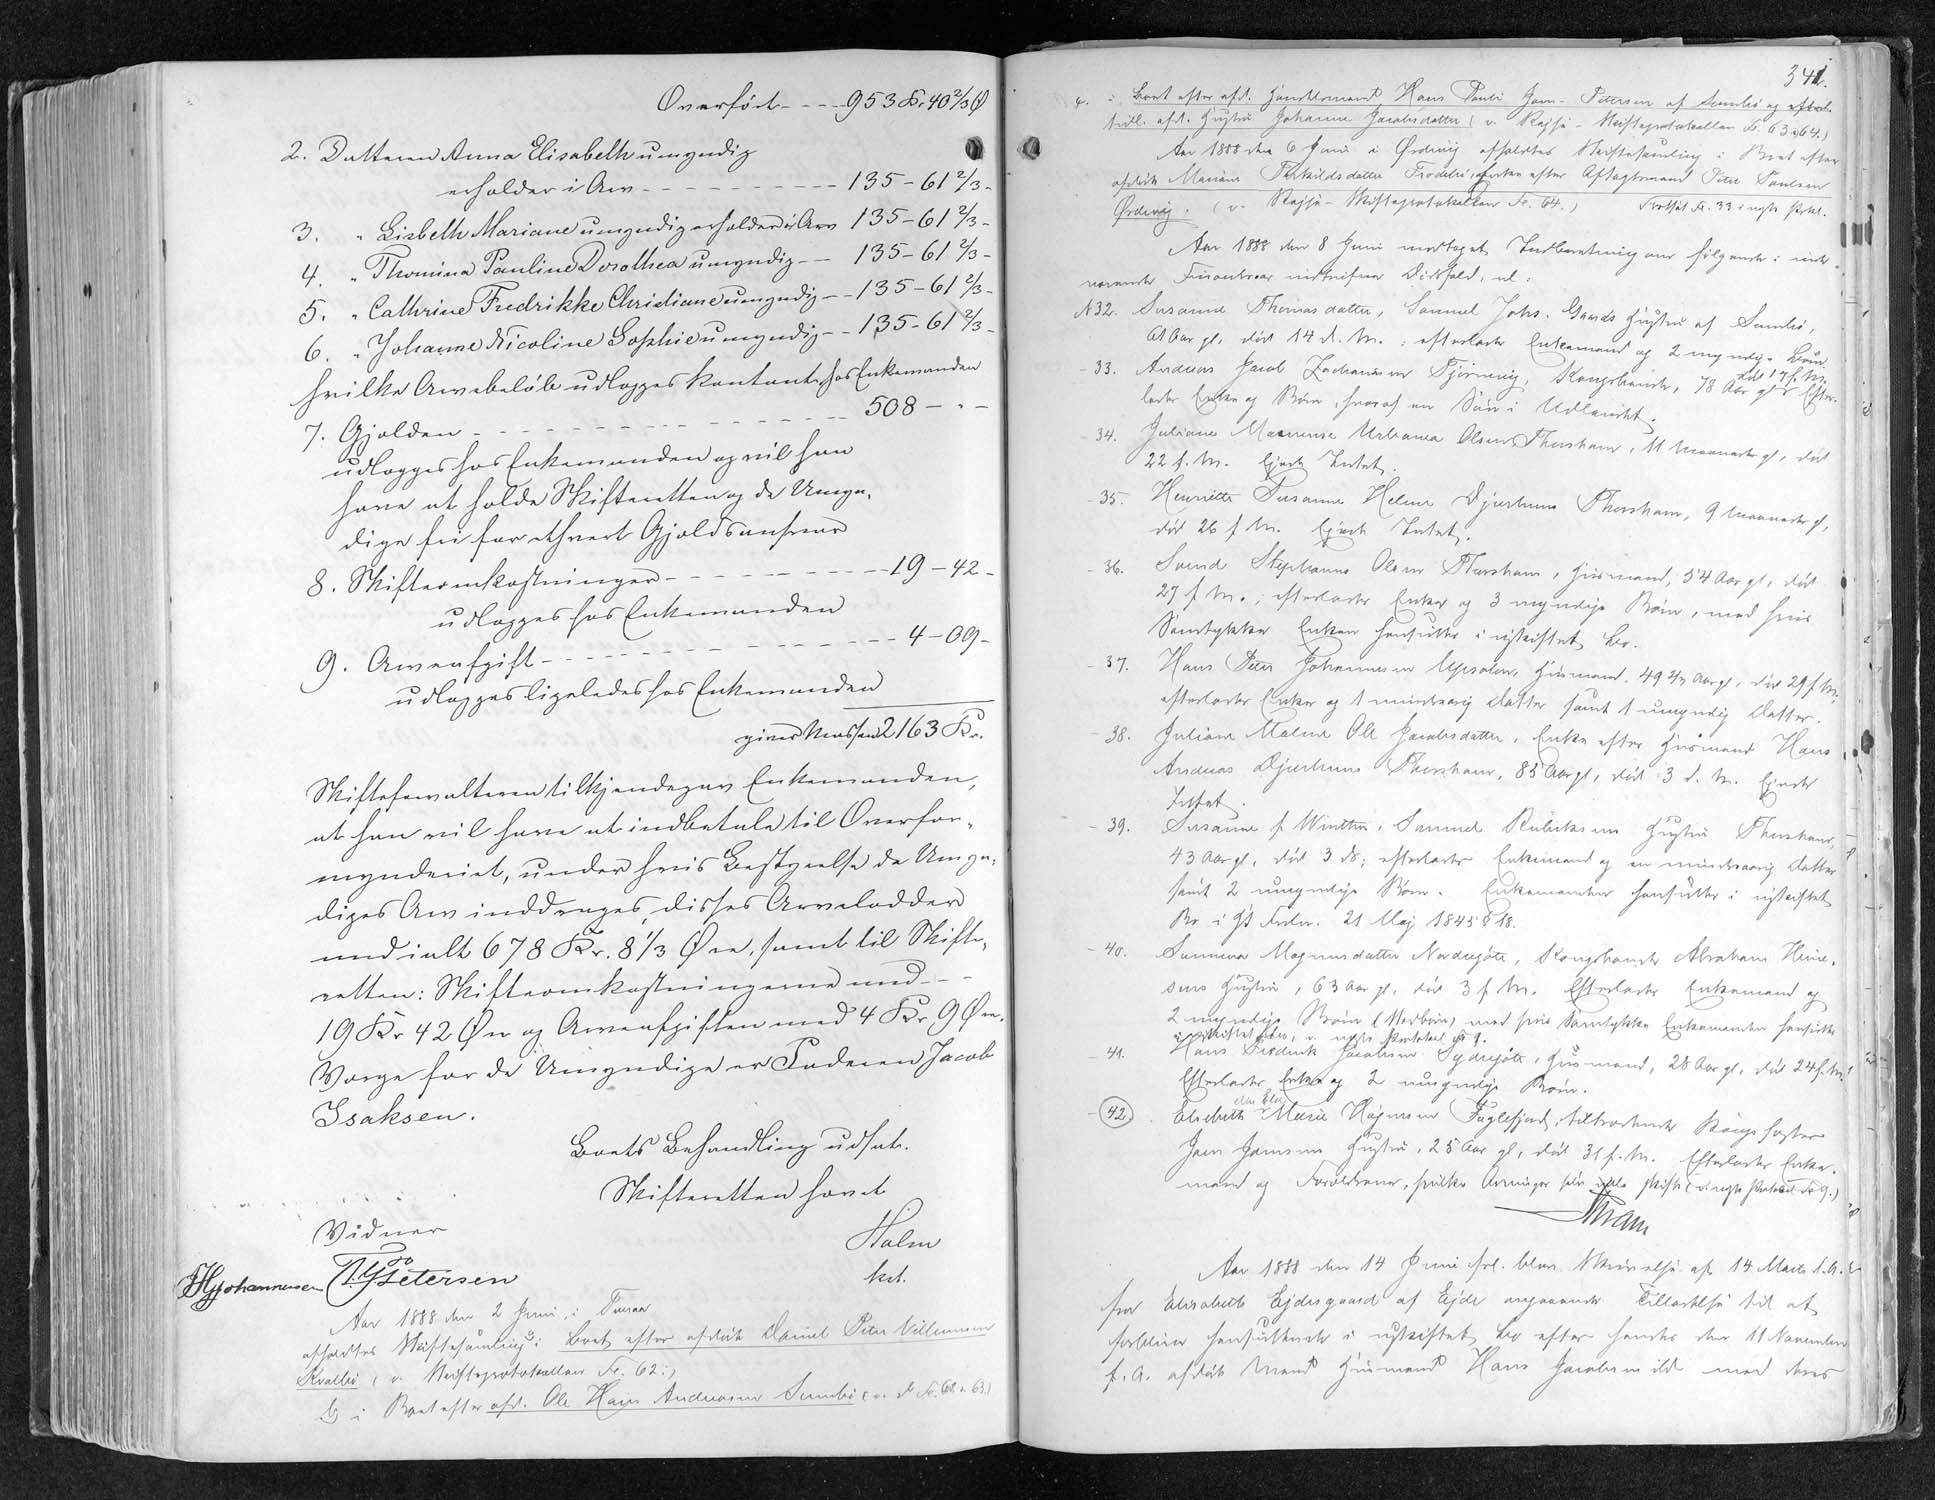 Overført - - - - 953 Kr 40 2/3 Ø
2. Datteren Anna Elisabeth umyndig
erholder i Arv - - - - - - - - - - 135 - 61 2/3 -
3. " Lisbeth Mariane umyndig erholder i Arv 135 - 61 2/3 -
4. " Thomina Pauline Dorothea umyndig - - 135 - 61 2/3 -
5. " Cathrine Fredrikke Christiane umyndig - - 135 - 61 2/3 -
6. " Johanne Nicoline Sophie umyndig - - 135 - 61 2/3 -
hvilke Arvebeløb udlægges kontant hos Enkemanden
7. Gjælden - - - - - - - - - - - - 508 - " -
udlægges hos Enkemanden og vil han
have at holde Skifteretten og de Umyn-
dige fri for ethvert Gjældsansvar
8. Skifteomkostninger - - - - - - - - - 19 - 42 -
udlægges hos Enkemanden
9. Arveafgift - - - - - - - - - - - - 4 - 09 -
udlægges ligeledes hos Enkemanden
giver Massen 2163 Kr.
Skifteforvalteren tilkjendegav Enkemanden,
at han vil have at indbetale til Overfor-
mynderiet, under hvis Bestyrelse de Umyn-
diges Arv inddrages, disses Arvelodder
med ialt 678 Kr. 8 1/3 Øre, samt til Skifte-
retten: Skifteomkostningerne med - -
19 Kr 42 Øre og Arveafgiften med 4 Kr 9 Øre.
Værge for de Umyndige er Faderen Jacob
Isaksen.
Boets Behandling udsat.
Skifteretten hævet
Vidner
Holm
kst.
HJJohannesen Petersen
Aar 1888 den 2 Juni, i
afholdtes Skiftesamling i Boet efter afdøde Daniel Peter Villumsen
Kvalbø (v. Skifteprotokollen Fo. 62.)
i Boet efter afd. Ole Hans Andreasen Sumbø (v. Fo. 62 & 63)
341.
i Boet efter afd. Hans Pauli Joen-Petersen af Sumbø og
tidl. afd. Hustru Johanne Jacobsdatter (v. Rejse-Skifteprotokollen Fo. 63 & 64.)
Aar 1888 den 6 Juni i Ørdevig afholdtes Skiftesamling i Boet efter
afdøde Mariane Frodebø, Enke efter Aftægtsmand Peter Poulsen
Ørdevig. (v. Rejse-Skifteprotokollen Fo. 64.) Fortsat Fo. 33 i nye Prtkl.
Aar 1888 den 8 Juni modtaget Indberetning om følgende i
indtrufne Dødsfald, nl:
N 32. Susanne Thomasdatter, Samuel Johs. Gaards Hustru af Sumbø,
61 Aar gl., død 14 d. M.; efterlader Enkemand og 2 myndige Børn.
- 33. Andreas Jacob Zachariasen Tjørnevig, Kongsbonde, 78 Aar gl., død 17 f. M. Efter-
lader Enke og Børn, hvoraf en Søn i Udlandet.
- 34. Juliane Olsen Thorshavn, 11 Maaneder gl., død
22 f. M. Ejede Intet.
- 35. Henriette Susanne Helene Djurhuus Thorshavn, 9 Maaneder gl.,
død 26 f. M. Ejede Intet.
- 36. Svend Stephanus Olsen Thorshavn, Huusmand, 54 Aar gl., død
27 f. M.; efterlader Enke og 3 myndige Børn, med hvis
Samtykke Enken hensidder i uskiftet Bo.
- 37. Hans Peter Johannesen Husmand, 49 Aar gl., død 29 f. M.
efterlader Enke og 1 mindreaarig Datter samt 1 umyndig Datter.
- 38. Juliane Malene Ole Jacobsdatter, Enke efter Huusmand Hans
Andreas Djurhuus Thorshavn, 85 Aar gl., død 3 d. M. Ejede
Intet.
- 39. Susanne f. Winther, Samuel Hustru Thorshavn,
43 Aar gl., død 3 ds; efterlader Enkemand og en mindreaarig Datter
samt 2 umyndige Børn. Enkemanden hensidder i uskiftet
Bo i Hht Frdn. 21 Maj 1845 § 18.
- 40. Sunneva Magnusdatter Nordregøte, Kongsbonde Abraham
Hustru, 63 Aar gl., død 3 f. M. Efterlader Enkemand og
2 myndige Børn (Stedbørn) med hvis Samtykke Enkemanden hensidder
i uskiftet Bo, v. nye Protokol Fo 9.
- 41. Hans Frederik Jacobsen Sydregøte, Huusmand, 28 Aar gl., død 24 f. M.
Efterlader Enke og 2 umyndige Børn.
- 42. Elsebeth Marie Høgnesen Fuglefjord, tiltrædende Kongsfæster
Joen Joensens Hustru, 25 Aar gl., død 31 f. M. Efterlader Enke-
mand og Forældrene, hvilke Arvinger selv ville skifte (v. nye Protokol Fo 9.)
Aar 1888 den 14 Juni blev Skrivelse af 14 Marts d. A.
fra Elisabeth Ejdesgaard af Ejde angaaende Tilladelse til at
forblive hensiddende i uskiftet Bo efter hendes den 11 November
f. A. afdøde Mand Huusmand Hans Jacobsen med deres